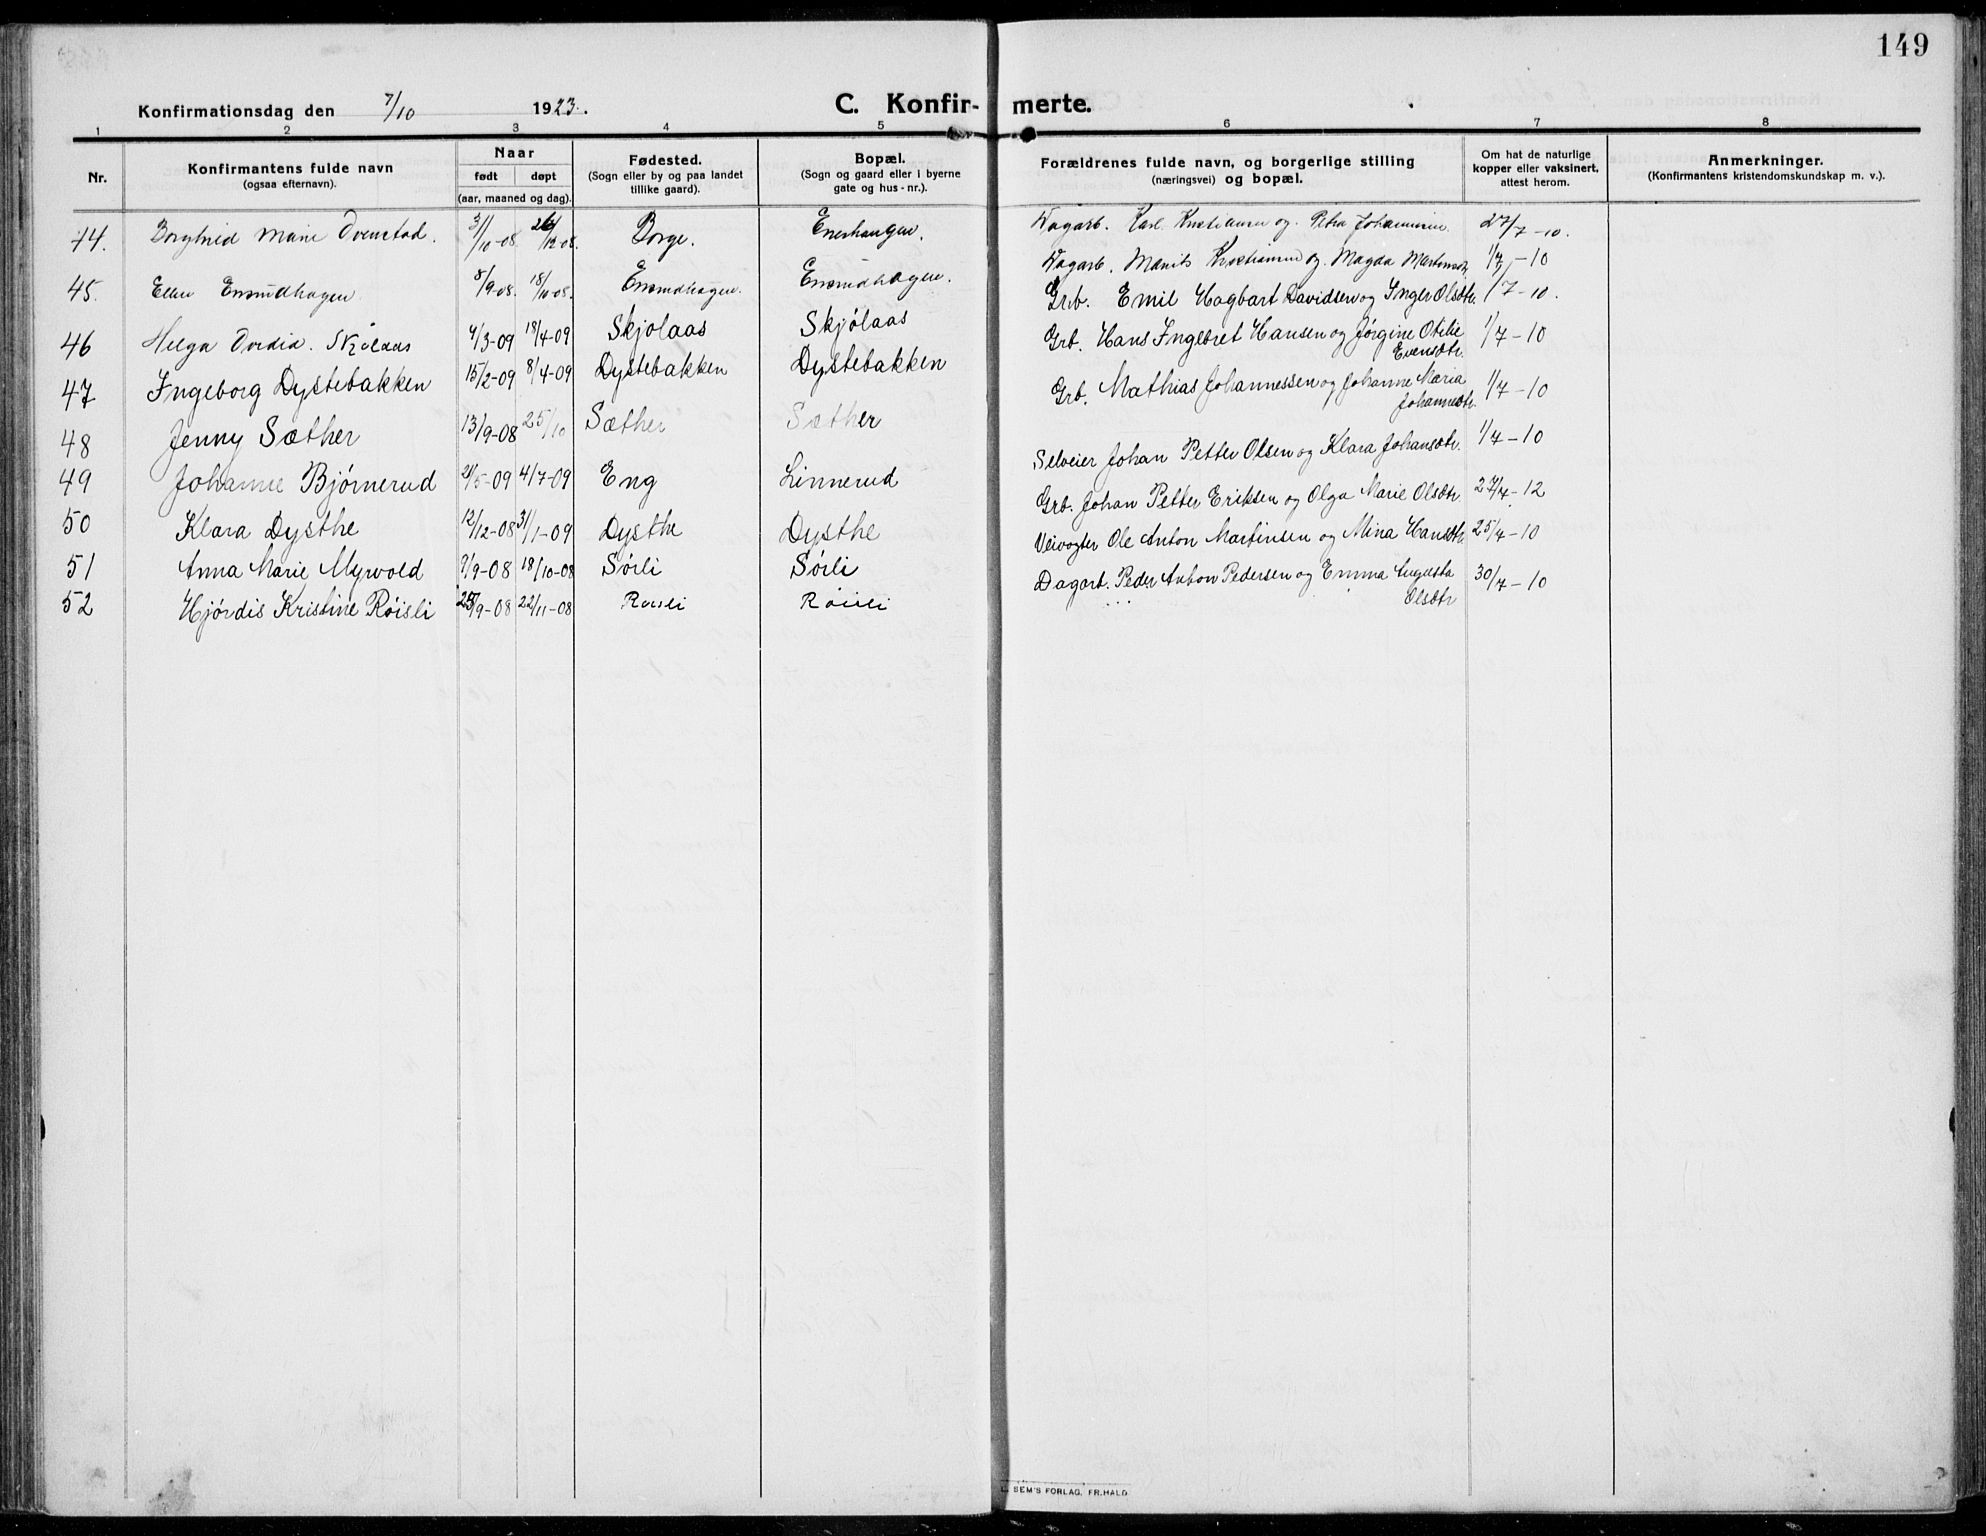 149
Konfirmationsdag den 7/10 1923.
C. Konfir- merte.
1 2 3 4 5 6 7 8
Nr.
Konfirmantens fulde navn
(ogsaa efternavn).
Naar
født døpt
(aar, maaned og dag).
Fødested.
(Sogn eller by og paa landet
tillike gaard).
Bopæl.
(Sogn og gaard eller i byerne
gate og hus-nr.).
Forældrenes fulde navn, og borgerlige stilling
(næringsvei) og bopæl.
Om hat de naturlige
kopper eller vaksinert,
attest herom.
Anmerkninger.
(Konfirmantens kristendomskundskap m. v.).
44. Marie 26/12-08. Borge. Karl Kristiansen og Petra 27/7-10.
45. Ellen 8/9-08. 18/10-08. Kristiansen og Magda 1/7-10
46 Helga Skjølaas 18/4-09 Skjolaas Skjølaas Grb. Emil Hagbart Davidsen og Inger Olsdtr. 1/7-10.
47 Ingeborg Dystebakken 15/2-09 8/4-09 Dystebakken Dystebakken Grb. Hans Ingebret Hansen og Jørgine Otilie
Evensdtr. 1/7-10
48 Jenny Sæther 13/9-08 25/10 Sæther Sæther Grb. Mathias Johannessen og Johanne Maria
Johannesdtr. 1/7-10
49 Johanne Bjørnerud 21/5-09 4/7-09 Eng Linnerud Selveier Johan Petter Olsen og Klara Johansdtr. 1/7-10
50 Klara Dysthe 12/12-08 31/1-09 Dysthe Dysthe Grb. Johan Petter Eriksen og Olga Marie Olsdtr. 27/7-12
51 Anna Marie Myrvold 9/9-08 18/10-08 Sørli Sørli Veivogter Ole Anton Martinsen og Mina Hansdtr. 25/7-10
52 Hjørdis Kristine Røisli 25/9-08 22/11-08 Roisli Røisli Dagarb. Peder Anton Pedersen og Emma Augusta
Olsdtr 30/7-10
SEM'S FORLAG, FR.HALD